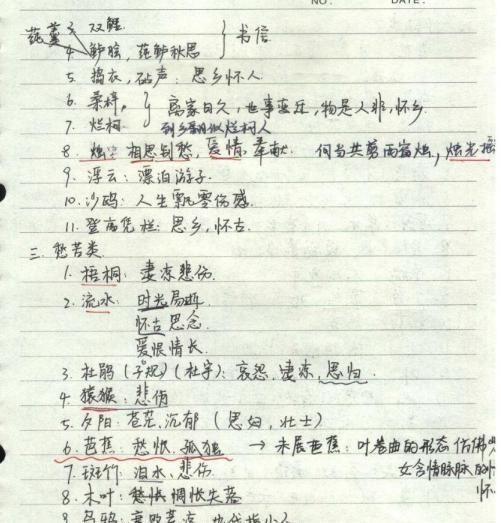 NO. DATE.
莼羹 3. 双鲤
4. 鲈脍, 莼鲈秋思 } 书信
5. 捣衣, 砧声: 思乡怀人
6. 桑梓, } 离家日久, 世事变迁, 物是人非, 怀乡
7. 烂柯 到乡翻似烂柯人
8. 烛: 相思别愁, 爱情 奉献 何当共剪西窗烛, 烛光摇
9. 浮云: 漂泊游子
10. 沙鸥: 人生飘零伤感
11. 登高凭栏: 思乡, 怀古
三. 愁苦类
1. 梧桐: 凄凉悲伤.
2. 流水: 时光易逝
怀古思念.
爱恨情长.
3. 杜鹃 (子规) (杜宇): 哀怨, 凄凉, 思归
4. 猿猴: 悲伤
5. 夕阳: 苍茫, 沉郁 (思妇, 壮士)
6. 芭蕉: 愁恨. 孤独 → 未展芭蕉: 叶卷曲的形态仿佛
7. 斑竹: 泪水, 悲伤 女含情脉脉的
8. 木叶: 愁怅惆怅失落 怀
9. 乌鸦: 衰败荒凉, 也代指小人